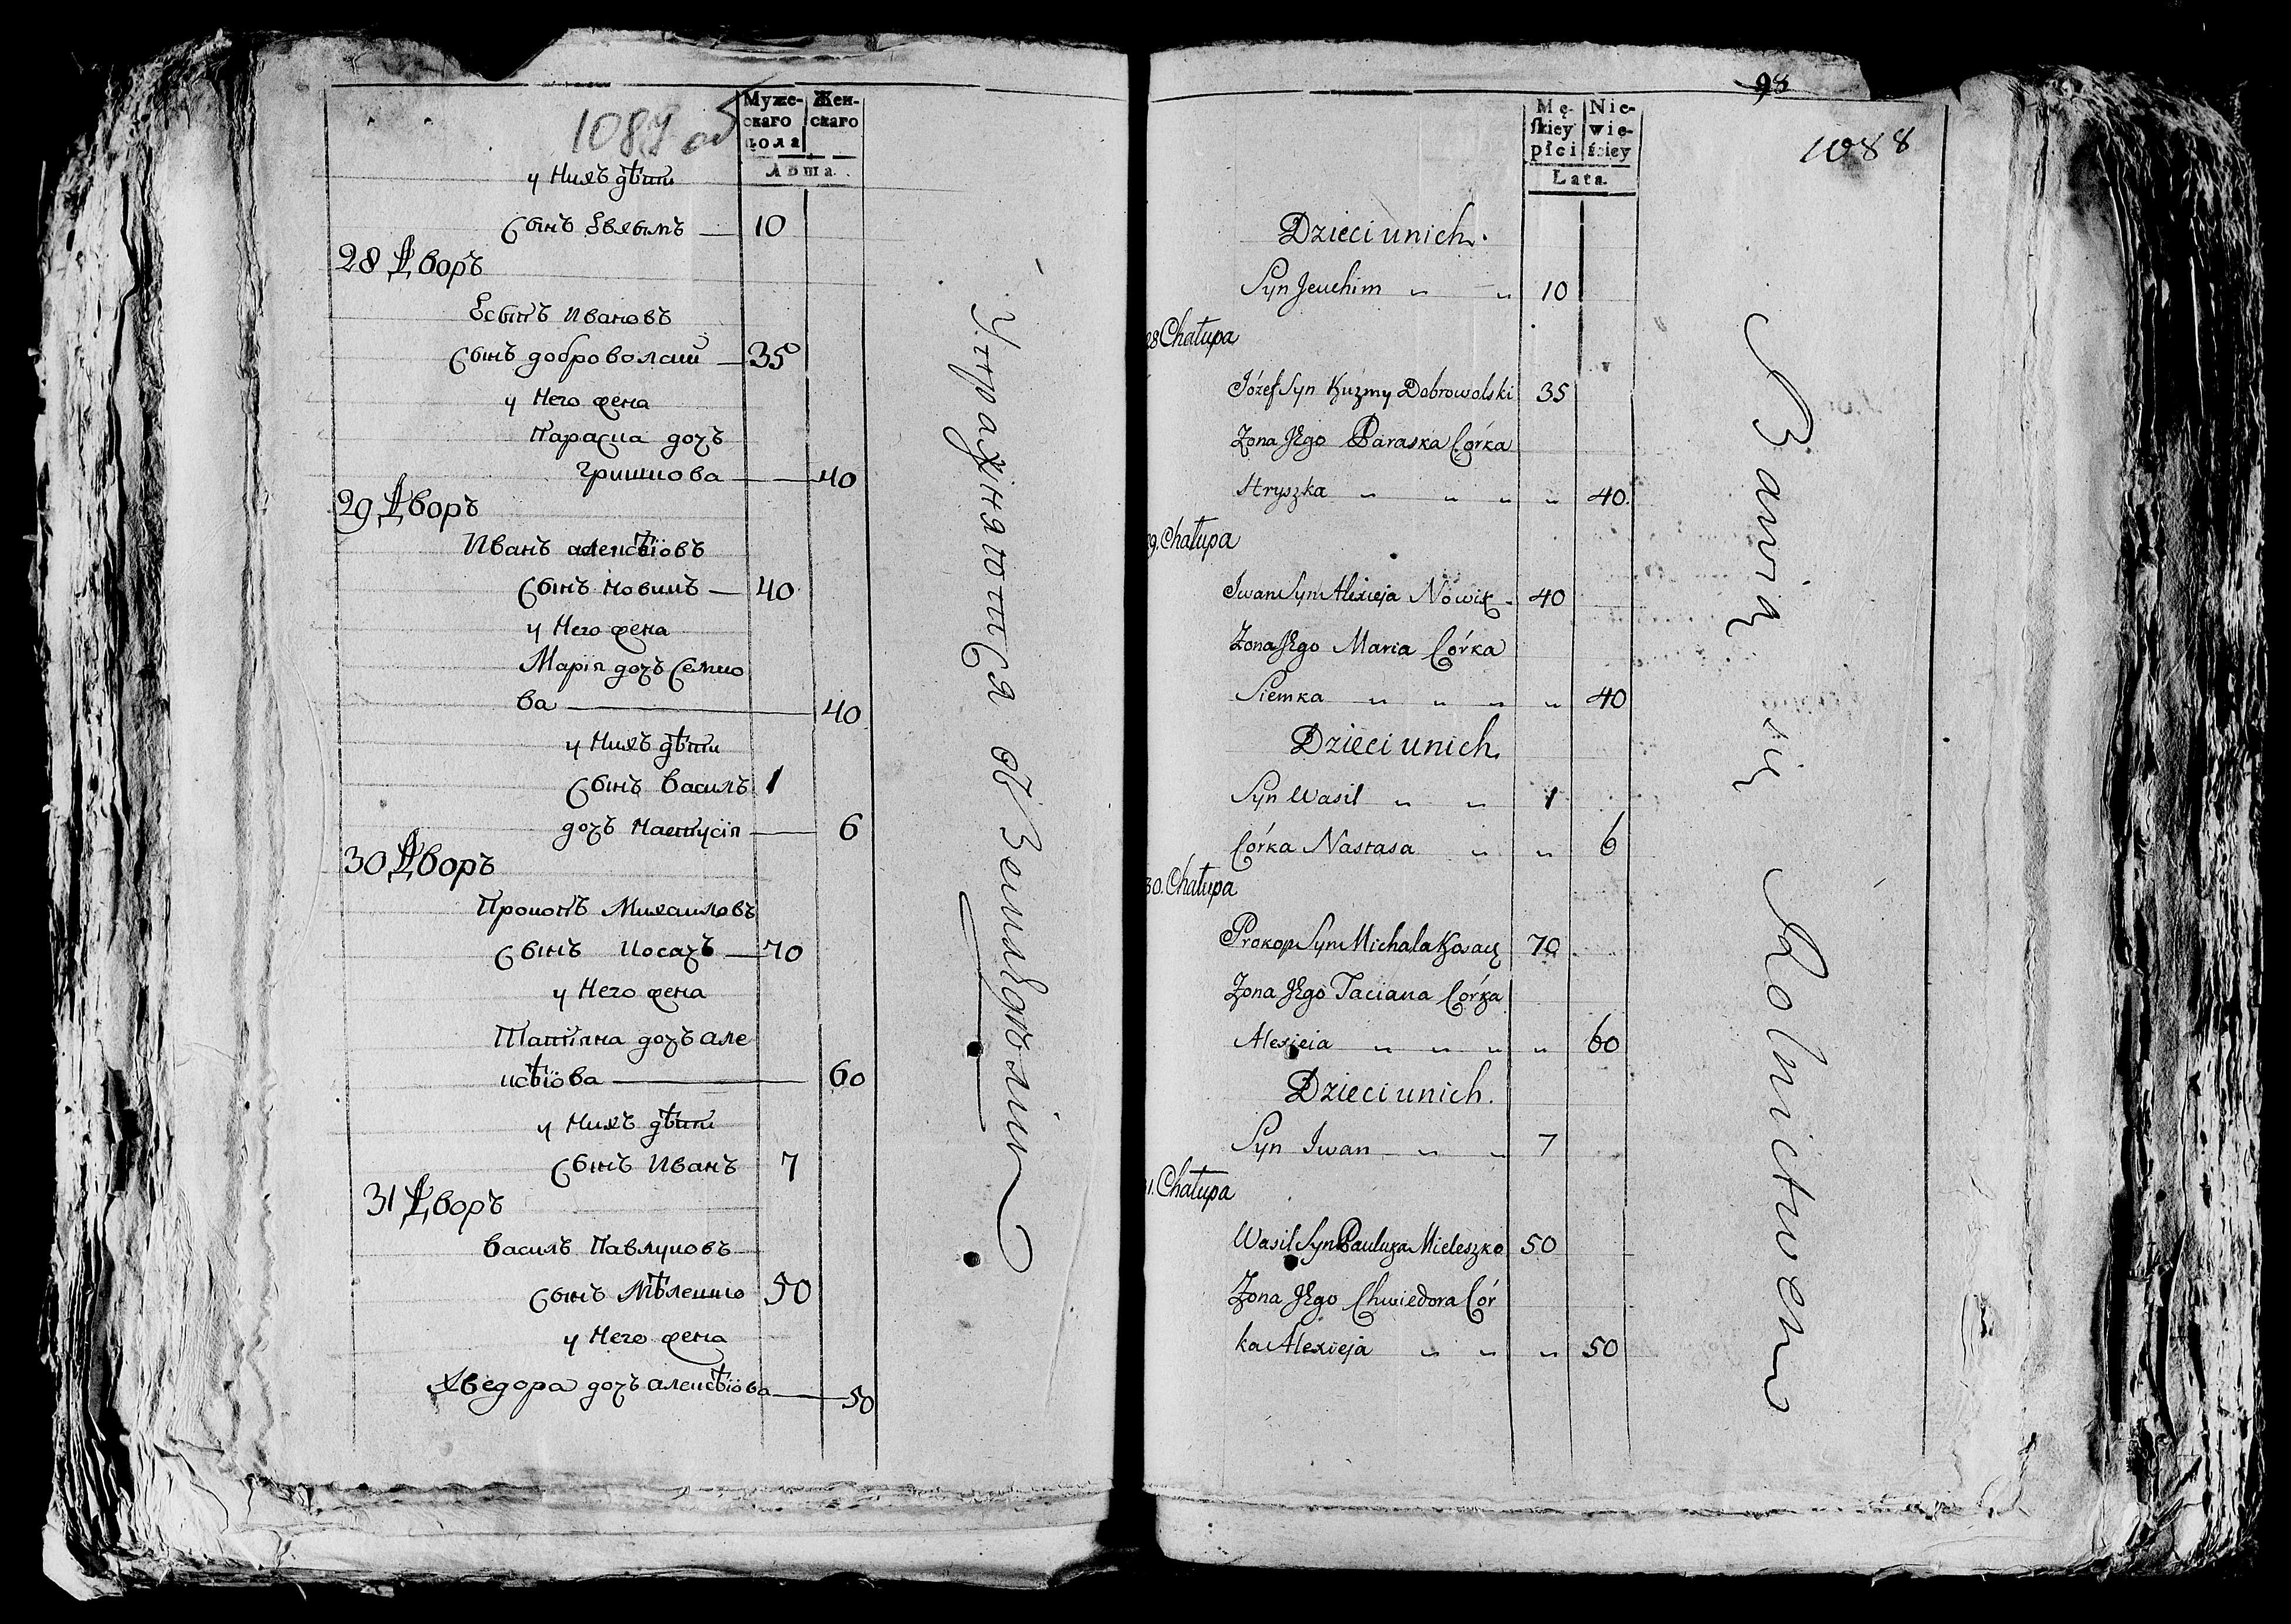 1087 об
Муже-
скаго
пола
Жен-
скаго
Лѣта.
у Нихъ дѣти
Сынъ Евхымъ — 10
28 Дворъ
Есыпъ Ивановъ
Сынъ доброволски — 35
у Него жена
Параска дочъ
Гришкова — 40
29 Дворъ
Иванъ алексѣіовъ
Сынъ Новикъ — 40
у Него жена
Марія дочъ Семко
ва — 40
у Нихъ дѣти
Сынъ Василъ 1
дочъ Настусія — 6
30 Дворъ
Прокопъ Михаиловъ
Сынъ Косачъ — 70
у Него жена
Татіяна дочъ але
ксѣіова — 60
у Нихъ дѣти
Сынъ Иванъ 7
31 Дворъ
Василъ Павлуковъ
Сынъ Мѣлешко 50
у Него жена
Хведора дочъ алексѣіова — 50
Упражняютця въ Земледѣліи
98
1088
Mę-
skiey
płci
Nie-
wie-
ściey
Lata.
Dzieci unich.
Syn Jeuchim „ „ 10
28 Chałupa
Józef Syn Kuzmy Dobrowolski 35
Zona Jego Paraska Córka
Hryszka „ „ „ „ 40.
29. Chałupa
Iwan Syn Alexieja Nowik 40
Zona Jego Maria Córka
Siemka „ „ „ „ 40
Dzieci unich
Syn Wasil „ „ 1
Córka Nastasa „ „ 6
30. Chałupa
Prokop Syn Michala Kosacz 70
Zona Jego Taciana Córka
Alexieia „ „ „ „ 60
Dzieci unich.
Syn Iwan „ „ 7
31. Chałupa
Wasil Syn Pauluka Mieleszko 50
Zona Jego Chwiedora Cór
ka Alexieja „ „ „ 50
Bawią się Rolnictwem